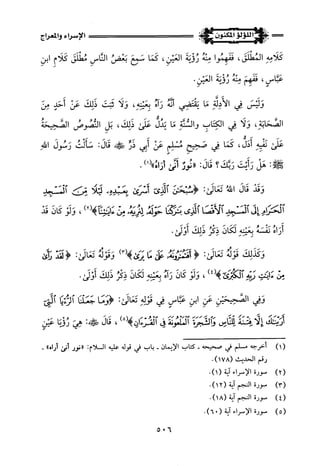 اللؤلؤ المكنون
الإسراء والمعراج
كَلَامِهِ المُطْلَقَ، فَفَهِمُوا مِنْهُ رُؤْيَةَ العَيْنِ، كَمَا سَمِعَ بَعْضُ النَّاسِ مُطْلَقَ كَلَامِ ابنِ
عَبَّاسٍ، فَفَهِمَ مِنْهُ رُؤْيَةَ العَيْنِ.
وَلَيْسَ فِي الأَدِلَّةِ مَا يَقْتَضِي أَنَّهُ رَآهُ بِعَيْنِهِ، وَلَا ثَبَتَ ذَلِكَ عَنْ أَحَدٍ مِنَ
الصَّحَابَةِ، وَلَا فِي الكِتَابِ والسُّنَّةِ مَا يَدُلُّ عَلَىٰ ذَلِكَ، بَلِ النُّصُوصُ الصَّحِيحَةُ
عَلَىٰ نَفْيِهِ أَدَلُّ، كَمَا فِي صَحِيحِ مُسْلِمٍ عَنْ أَبِي ذَرٍّ ﷺ قَالَ: سَأَلْتُ رَسُولَ اللهِ
ﷺ: هَلْ رَأَيْتَ رَبَّكَ؟ قَالَ: «نُورٌ أَنَّىٰ أَرَاهُ»(١).
وَقَدْ قَالَ اللهُ تَعَالَىٰ: ﴿سُبْحَٰنَ ٱلَّذِىٓ أَسْرَىٰ بِعَبْدِهِۦ لَيْلًا مِّنَ ٱلْمَسْجِدِ
ٱلْحَرَامِ إِلَى ٱلْمَسْجِدِ ٱلْأَقْصَا ٱلَّذِى بَٰرَكْنَا حَوْلَهُۥ لِنُرِيَهُۥ مِنْ ءَايَٰتِنَآ﴾(٢)، وَلَوْ كَانَ قَدْ
أَرَاهُ نَفْسَهُ بِعَيْنِهِ لَكَانَ ذِكْرُ ذَلِكَ أَوْلَىٰ.
وَكَذَلِكَ قَوْلُهُ تَعَالَىٰ: ﴿أَفَتُمَٰرُونَهُۥ عَلَىٰ مَا يَرَىٰ﴾(٣) وَقَوْلُهُ تَعَالَىٰ: ﴿لَقَدْ رَأَىٰ
مِنْ ءَايَٰتِ رَبِّهِ ٱلْكُبْرَىٰٓ﴾(٤)، وَلَوْ كَانَ رَآهُ بِعَيْنِهِ لَكَانَ ذِكْرُ ذَلِكَ أَوْلَىٰ.
وَفِي الصَّحِيحَيْنِ عَنِ ابنِ عَبَّاسٍ فِي قَوْلِهِ تَعَالَىٰ: ﴿وَمَا جَعَلْنَا ٱلرُّءْيَا ٱلَّتِىٓ
أَرَيْنَٰكَ إِلَّا فِتْنَةً لِّلنَّاسِ وَٱلشَّجَرَةَ ٱلْمَلْعُونَةَ فِى ٱلْقُرْءَانِ﴾(٥)، قَالَ ﷺ: هِيَ رُؤْيَا عَيْنٍ
(١) أخرجه مسلم في صحيحه - كتاب الإيمان - باب في قوله عليه السلام: «نور أنىٰ أراه» -
رقم الحديث (١٧٨).
(٢) سورة الإسراء آية (١).
(٣) سورة النجم آية (١٢).
(٤) سورة النجم آية (١٨).
(٥) سورة الإسراء آية (٦٠).
٥٠٦